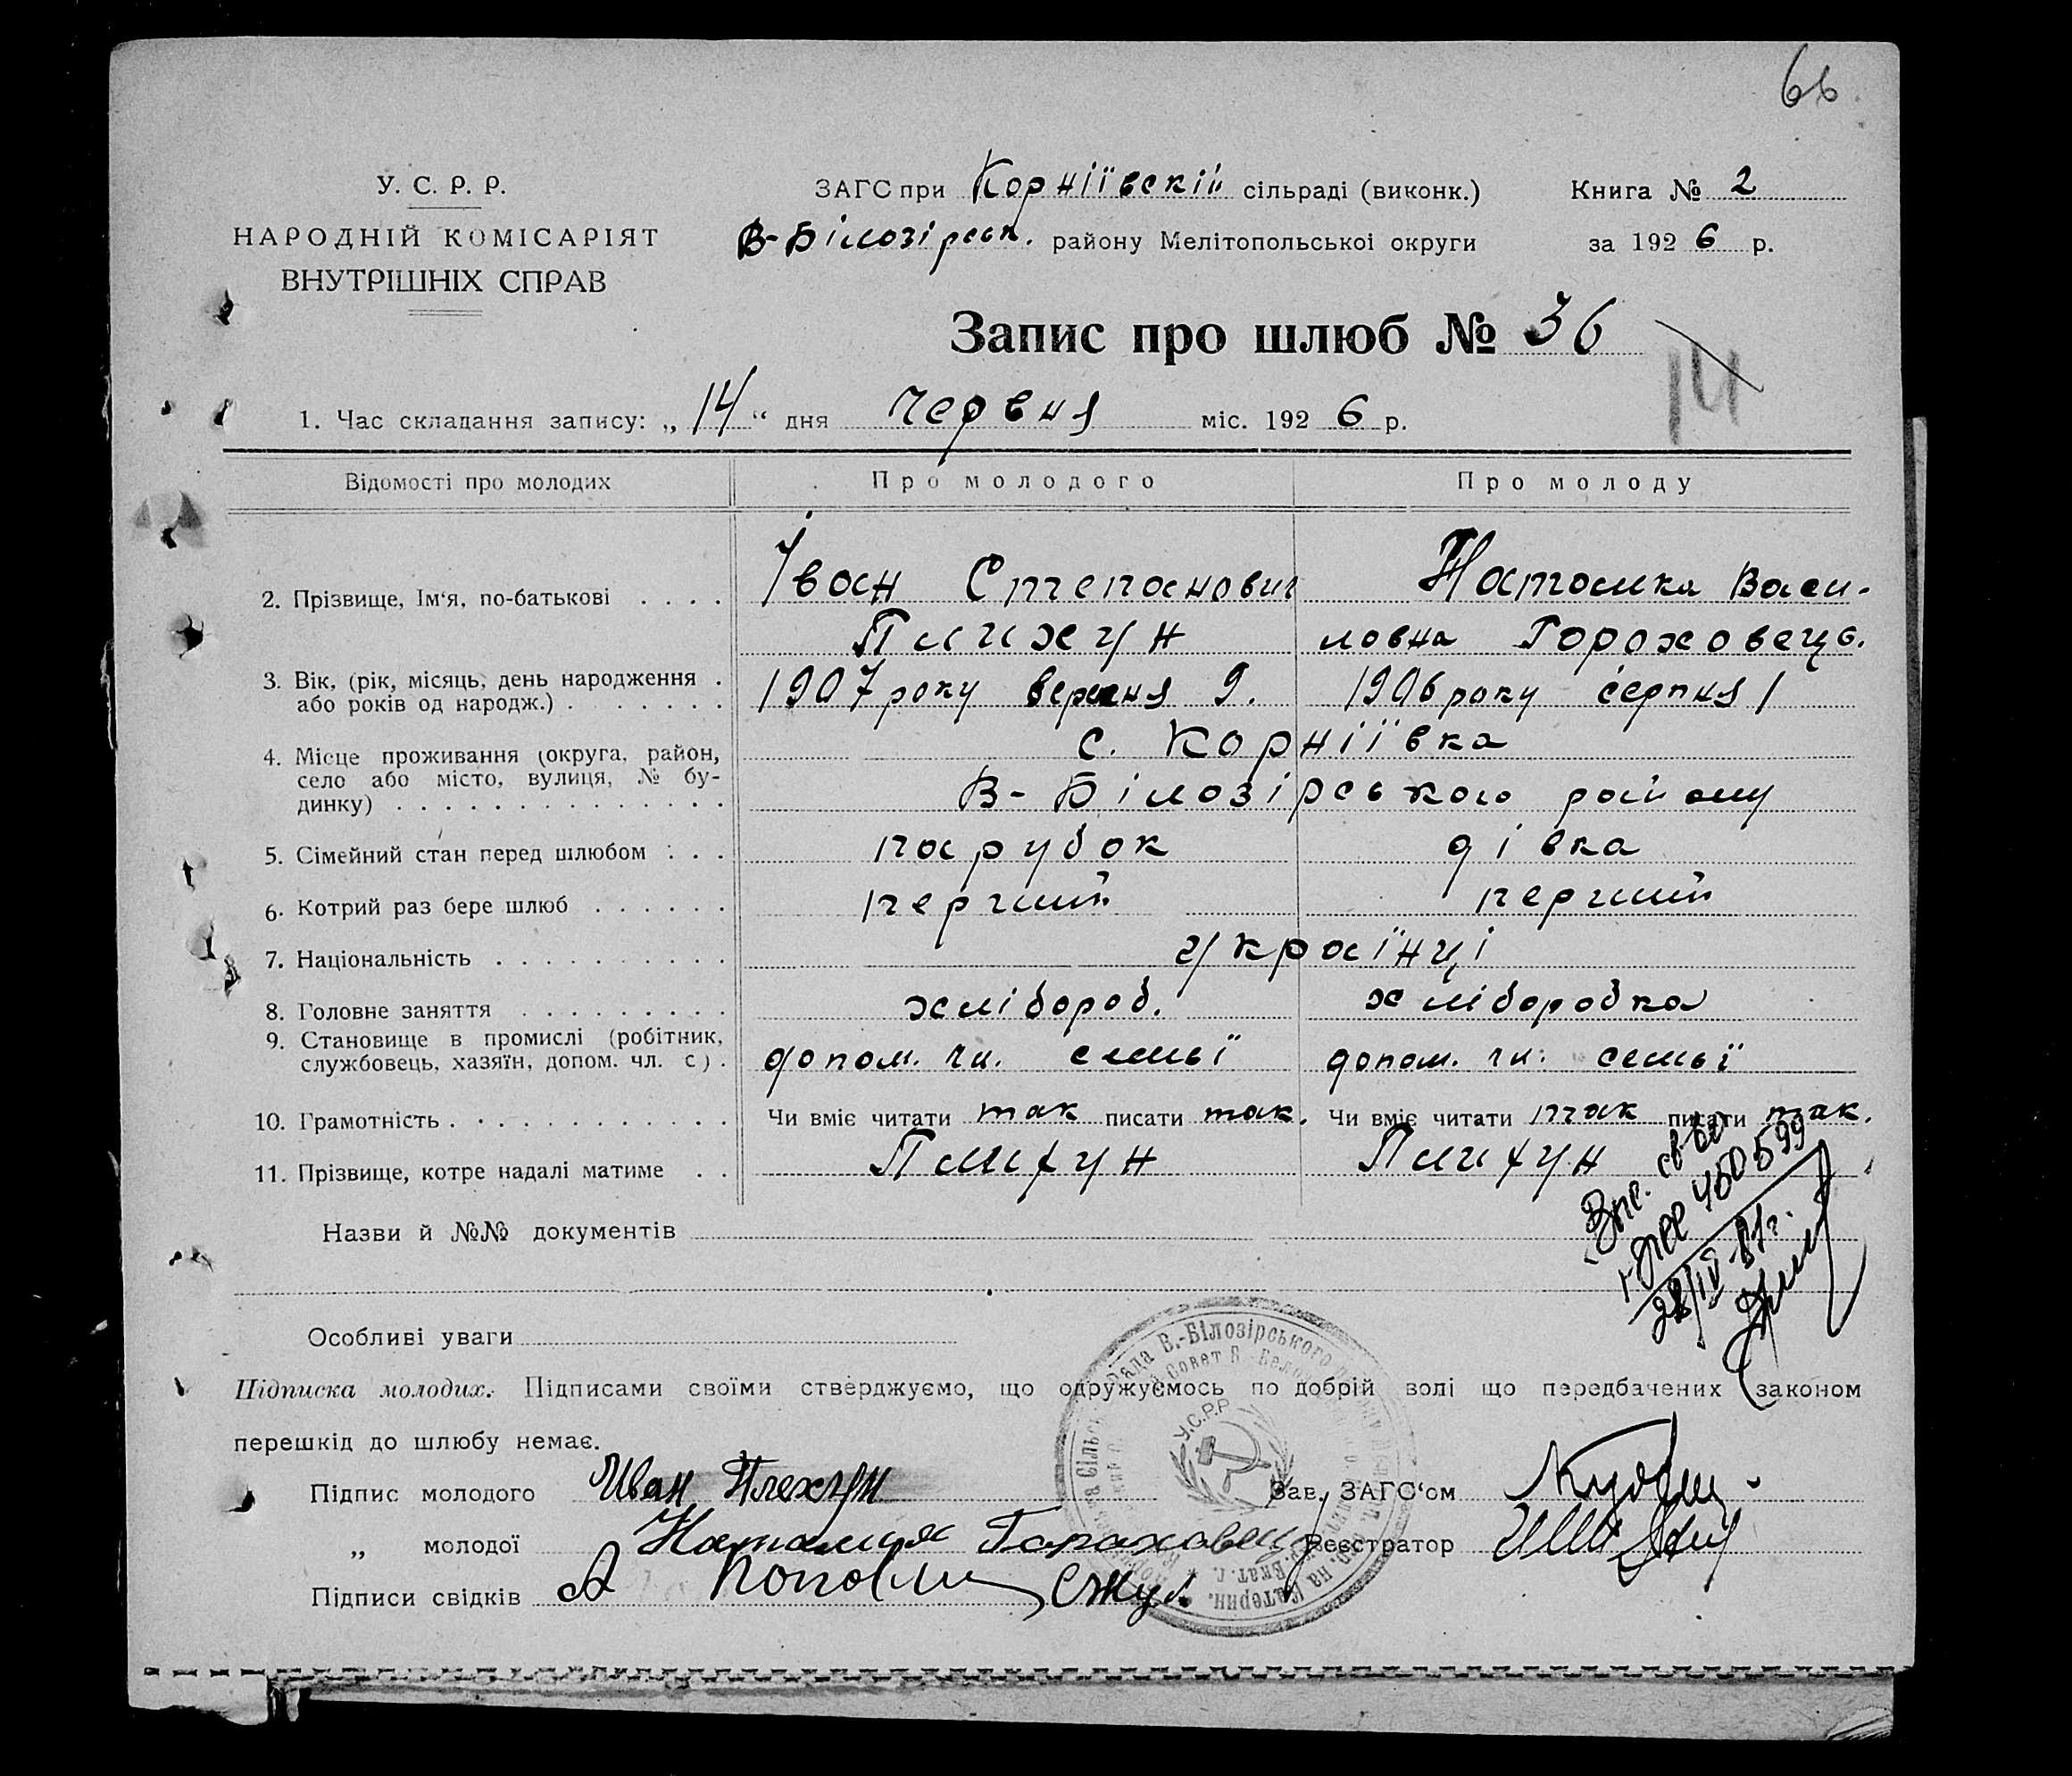 66
У. С. Р. Р.
НАРОДНІЙ КОМІСАРІЯТ
ВНУТРІШНІХ СПРАВ
ЗАГС при Корніївскій сільраді (виконк.)
В-Білозірськ. району Мелітопольської округи
Книга № 2
за 1926 р.
Запис про шлюб № 36
14
1. Час складання запису: „14“ дня Червня міс. 1926 р.
Відомості про молодих
Про молодого
Про молоду
2. Прізвище, Ім‘я, по-батькові . . . .
Іван Степанович
Плихун
Наталка Васи-
ловна Гороховець.
3. Вік, (рік, місяць, день народження .
або років од народж.) . . . . . . .
1907 року вересня 9.
1906 року серпня 1
4. Місце проживання (округа, район,
село або місто, вулиця, № бу-
динку) . . . . . . . . . . . . . .
с. Корніївка
В-Білозірського району
5. Сімейний стан перед шлюбом . . .
парубок
дівка
6. Котрий раз бере шлюб . . . . . .
перший
перший
7. Національність . . . . . . . . . .
українці
8. Головне заняття . . . . . . . . .
хлібороб.
хліборобка
9. Становище в промислі (робітник,
службовець, хазяїн, допом. чл. с) .
допом. чл. семьї
допом. чл. семьї
10. Грамотність . . . . . . . . . . . .
Чи вміє читати так писати так.
Чи вміє читати так писати так.
11. Прізвище, котре надалі матиме . .
Плихун
Плихун
450599
28/IV-81г.
Назви й №№ документів
Особливі уваги
Підписка молодих. Підписами своїми стверджуємо, що одружуємось по добрій волі що передбачених законом
перешкід до шлюбу немає.
У.С.Р.Р.
Рада В.-Білозірського
Підпис молодого Иван Плехун
Зав. ЗАГС‘ом
„ молодої Наталия Гараховец
Реєстратор
Підписи свідків